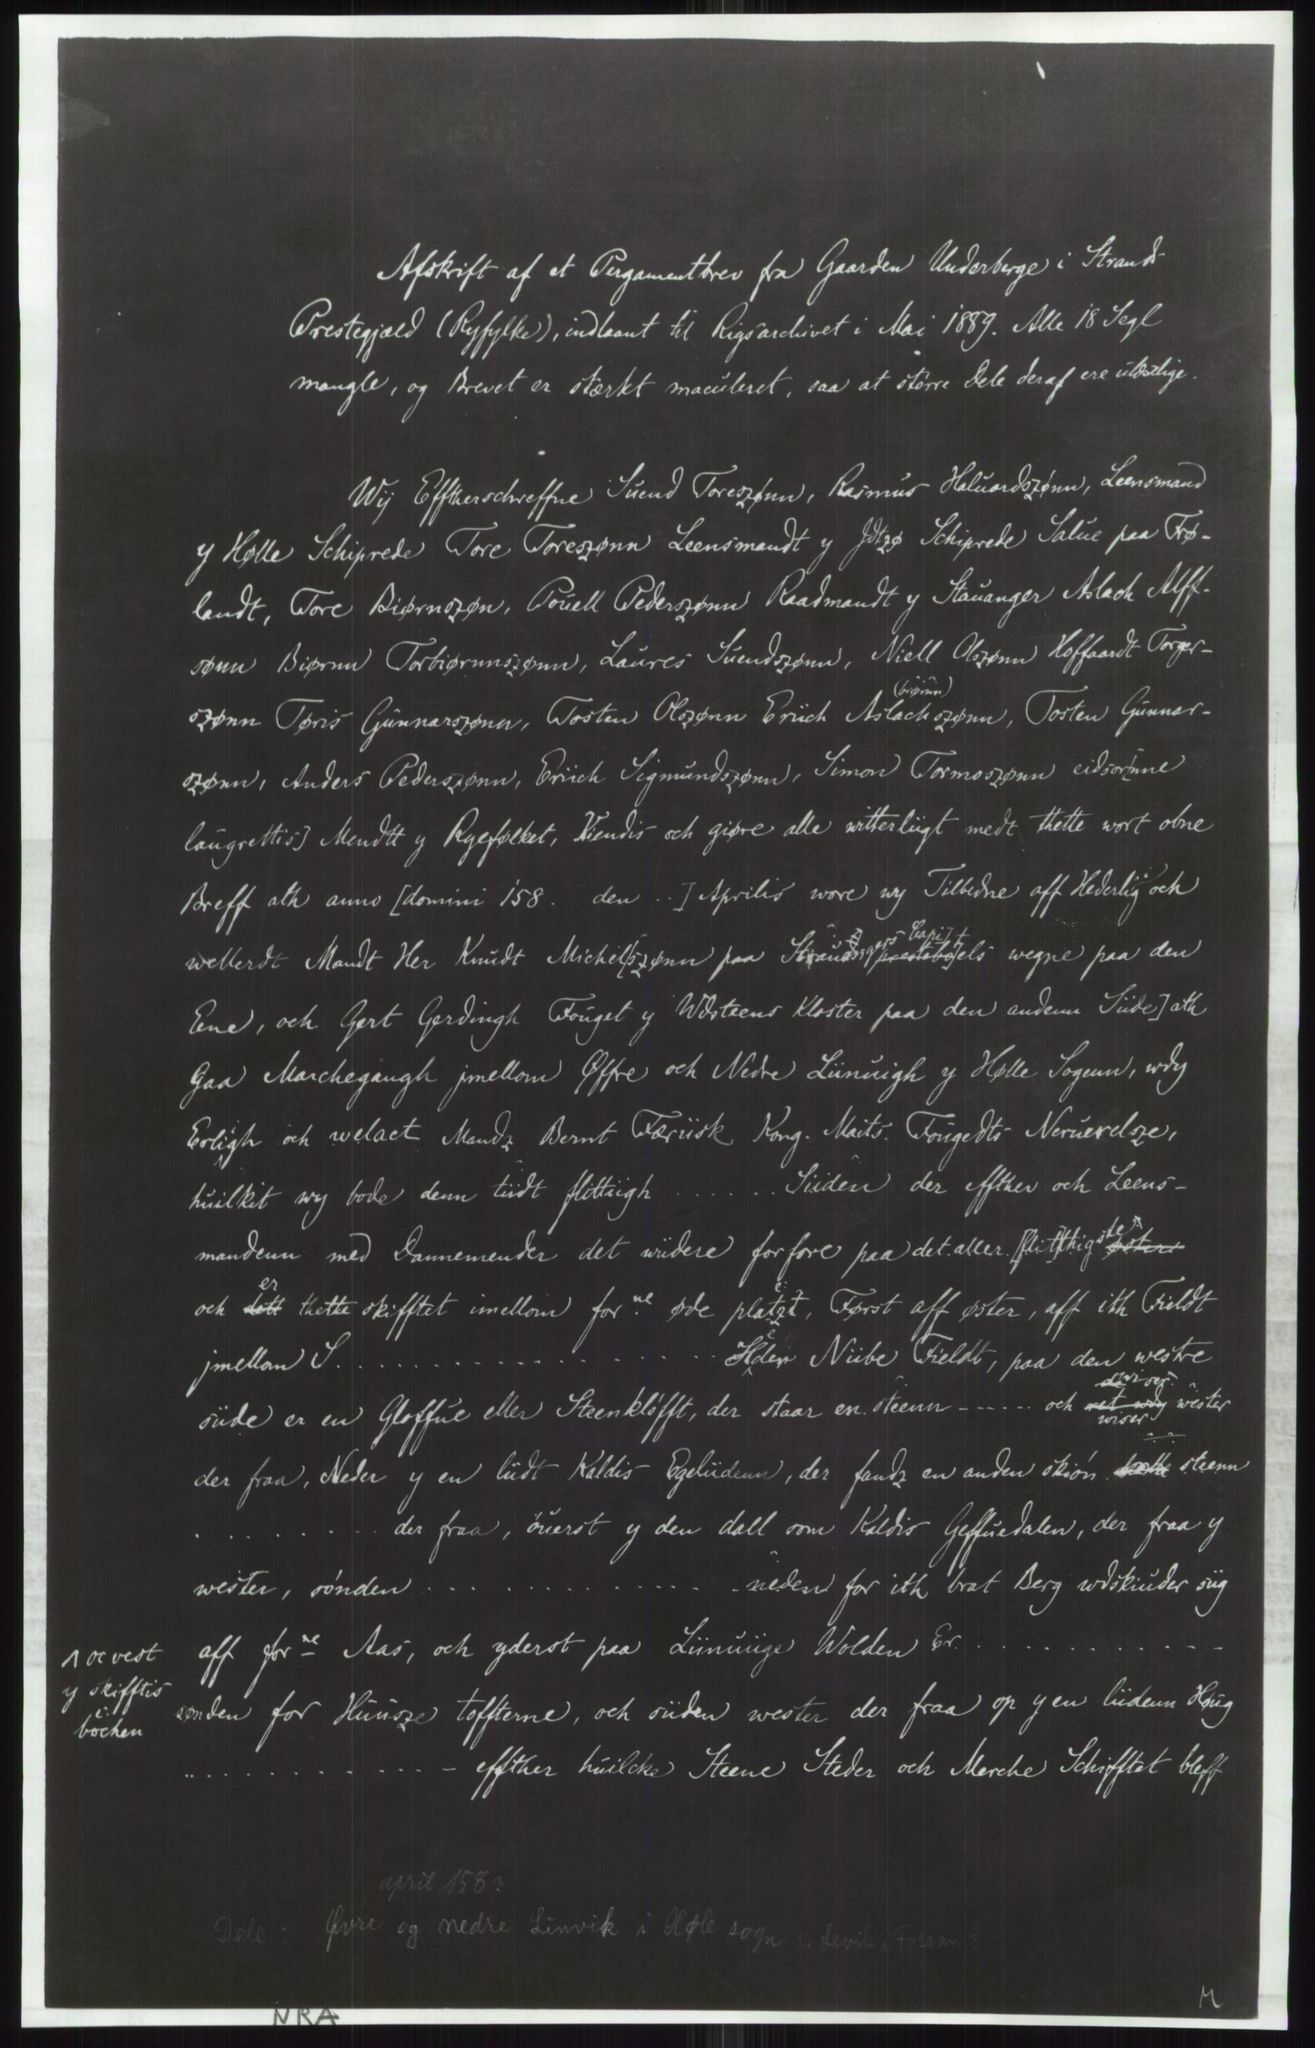 Afskrift af et Pergamentbrev fra Gaarden Underberge i Strand
Prestegjæld (Ryfylke), indlaant til Rigsarchivet i Mai 1889. Alle 18 Segl
mangle, og Brevet er stærkt maculeret, saa at större Dele deraf ere ulæselige.
Wij Effterschreffne Suend Toreszønn, Rasmus Haluardszønn, Leensmand
y Hølle Schiprede Tore Toreszønn Leensmandt y Jdtzø Schiprede Salue paa Frø-
landt, Tore Biørnszøn, Pouell Pederszønn Raadmandt y Stauanger Aslach Alff-
sønn Biørnn Torbiørnnszønn, Laures Suendszønn, Niell Olszønn Hoffaardt Torger-
(biørnn)
szønn Tøris Gunnarszønn, Tosten Olszønn Eriich Aslachszønn, Tosten Gunnar-
szønn, Anders Pederszønn, Eriich Sigmundszønn, Simon Tormoszønn eidsorinne
laugrettis] Mendtt y Ryefølket, Kiendis och giøre alle witterligt medt thette wort obne
Breff ath anno [domini 158. den ..] Aprilis wore wy Tilbedne aff Hederlig och
wellerdt Mandt Her Knudt Michel[szønn paa Stauangers Capit]els wegne paa den
Ene, och Gert Gerdingh Fouget y Wdsteens Kloster paa den andenn Siide] ath
Gaa Marchegangh jmellom Øffre och Nedre Liinuigh y Hølle Sogenn, wdy
Erligh och welact Mandz Bernt Færiisk Kong. Maits. Fougedts Neruerelsze,
huilkit wy bode denn tiidt flittiigh . . . . . . Siiden der effther och Leens-
mandenn med Dannemender det wiidere forfore paa det aller [flitthigste]
och er thette skifftet imellom forne øde platzt, Først aff øster, aff ith Fieldt
jmellom S . . . . . . . . . . . . . . . . Heder Niibe Fieldt, paa den westre
siide er en Gloffue eller Steenklöfft, der staar en steenn - . . . . . och wiser wester
der fraa, Neder y en liidt Kaldis Egeliidenn, der fandz en anden skiön steenn
. . . . . . . . . der fraa, öuerst y den dall som Kaldis Geffuedalen, der fraa y
wester, sönden . . . . . . . . . . . . . . neden for ith brat Berg wdskiuder siig
aff forne Aas, och yderst paa Liinuiige Wolden Er. . . . . . . . . . . .
^ oc vest
y skifftis
böcken
sønden for Huusze toffterne, och siiden wester der fraa op y en liidenn Houg
. . . . . . . . . . . . - effther huilcke Steene Steder och Merche Schifftet bleff
april 158?
Dele: Øvre og nedre Linvik i Høle sogn
NRA
M